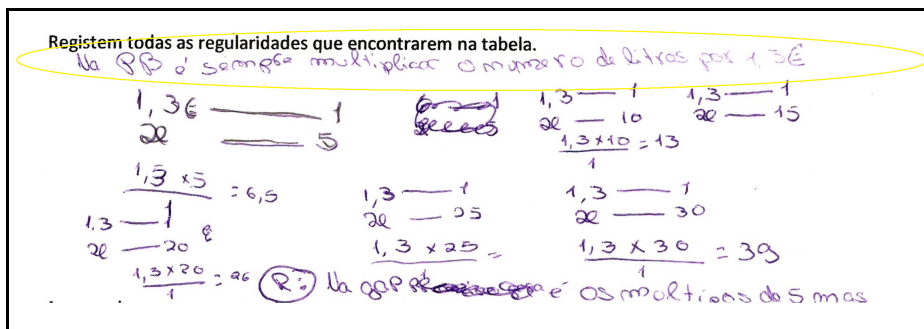 Registem todas as regularidades que encontrarem na tabela.
Na PB é sempre multiplicar o numero de litros por 1,3€
1,3€ — 1
x — 5
1,3 x5 = 6,5
1
1,3 — 1
x — 10
1,3x10 = 13
1
1,3 — 1
x — 15
1,3 — 1
x — 20
1,3x20 = 26
1
1,3 — 1
x — 25
1,3 x 25 =
1,3 — 1
x — 30
1,3 x 30 = 39
1
R: Na é os moltiplos do 5 mas